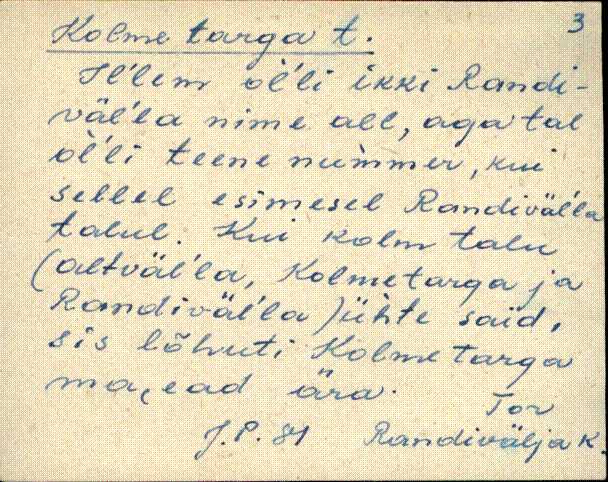 3
Kolme targa t.
Il'lem ol'li ikki Randi-
väl'la nime all, aga tal
ol'li teene nummer, kui
sellel esimesel Randiväl'la
talul. Kui kolm talu
(altväl'la, Kolmetarga ja
Randiväl'la) ühte said,
sis lõhuti Kolme targa
ma,ead ära.
Tor
J.P. 81 Randivälja K.